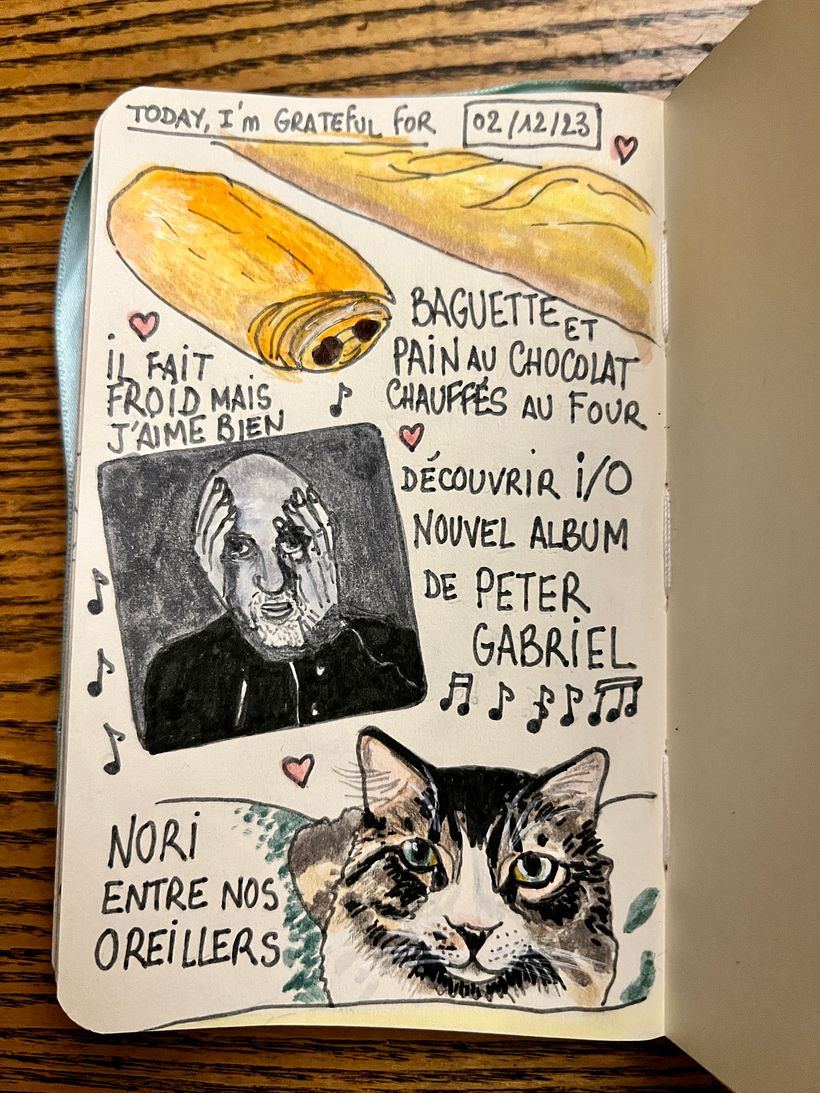 TODAY, I'm GRATEFUL FOR
02/12/23
BAGUETTE ET
PAIN AU CHOCOLAT
CHAUFFÉS AU FOUR
iL FAIT
FROID MAIS
J'AIME BIEN
DÉCOUVRIR i/O
NOUVEL ALBUM
DE PETER
GABRiEL
NORi
ENTRE NOS
OREiLLERS